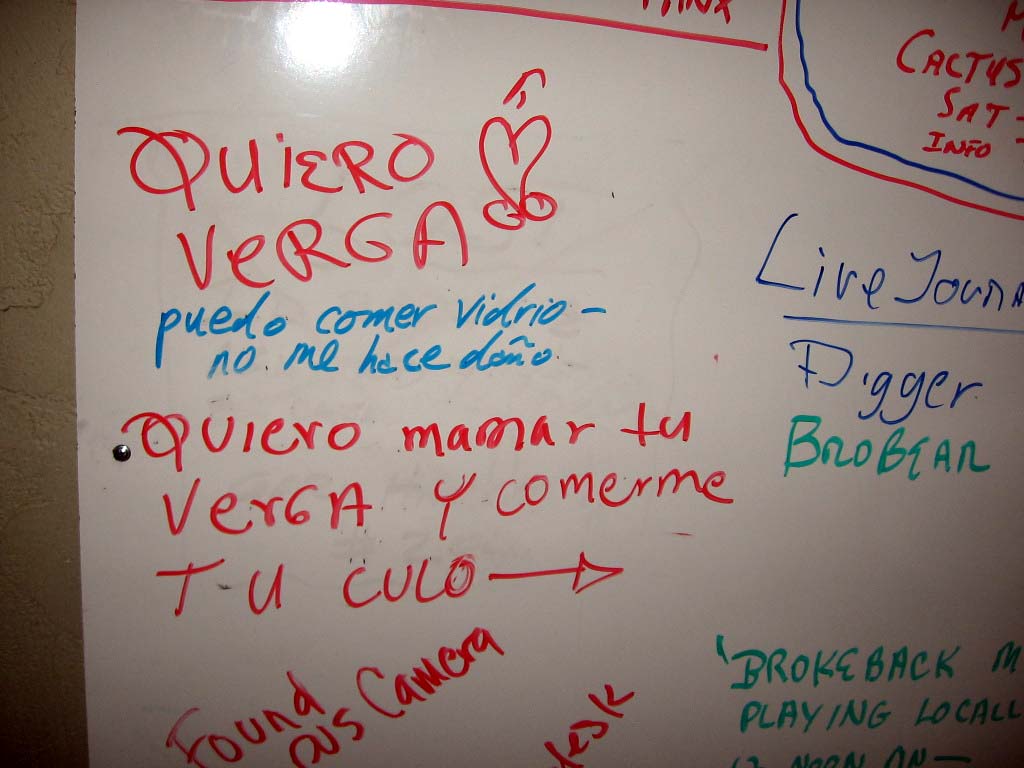 CACTUS
SAT -
INFO -
QUIERO
VERGA
puedo comer vidrio -
no me hace daño.
QUIERO mamar tu
VERGA y comerme
TU CULO
Live Journa
Digger
BROBEAR
Found
Camera
'BROKEBACK M
PLAYING LOCALL